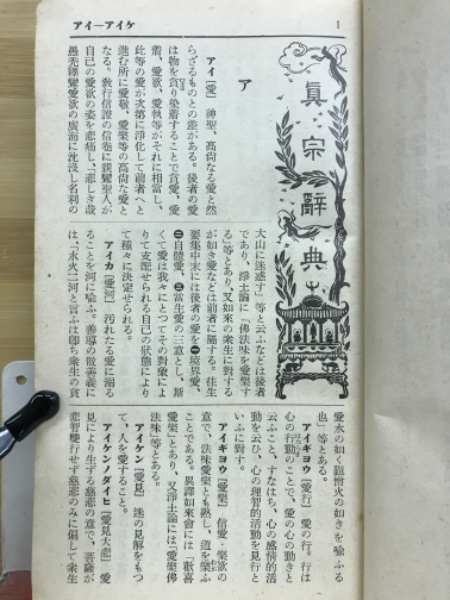 アイ―アイケ
1
眞宗辭典
ア
アイ【愛】 神聖、高尚なる愛と然
らざるものとの差がある。後者の愛
は物を貪り染着することで貪愛、愛
着、愛欲、愛執等がそれに相當し、
此等の愛が次第に淨化して前者へと
進む所に愛敬、愛樂等の高尚な愛と
なる。敎行信證の信卷に親鸞聖人が
自己の愛欲の姿を悲痛し、「悲しき哉
愚禿鸞愛欲の廣海に沈沒し名利の
大山に迷惑す」等と云ふなどは後者
であり、淨土論に「佛法味を愛樂す
る」等とあり、又如來の衆生に對する
が如き愛などは前者に屬する。往生
要集中末には後者の愛を㊀境界愛、
㊁自體愛、㊂當生愛の三意とし、斯
くて愛は我々にとつてその對象によ
りて支配せられる自己の狀態により
て種々に決定せられる。
アイカ【愛河】 汚れたる愛に溺る
ることを河に喩ふ。善導の散善義に
は「水火二河と言ふは卽ち衆生の貪
愛水の如く瞋憎火の如きを喩ふる
也」等とある。
アイギヨウ【愛行】 愛の行。行は
心の行動のことで、愛の心の動きと
云ふこと、すなはち、心の感情的活
動を云ひ、心の理智的活動を見行と
いふに對す。
アイギヨウ【愛樂】 信愛・樂欲の
意で、法味愛樂とも熟し、道を樂ふ
ことである。異譯如來會には「歡喜
愛樂」とあり、又淨土論には「愛樂佛
法味」等とある。
アイケン【愛見】 迷の見解をもつ
て、人を愛すること。
アイケンノダイヒ【愛見大悲】 愛
見により生ずる慈悲の意で、菩薩が
悲智雙行せず慈悲のみに偏して衆生